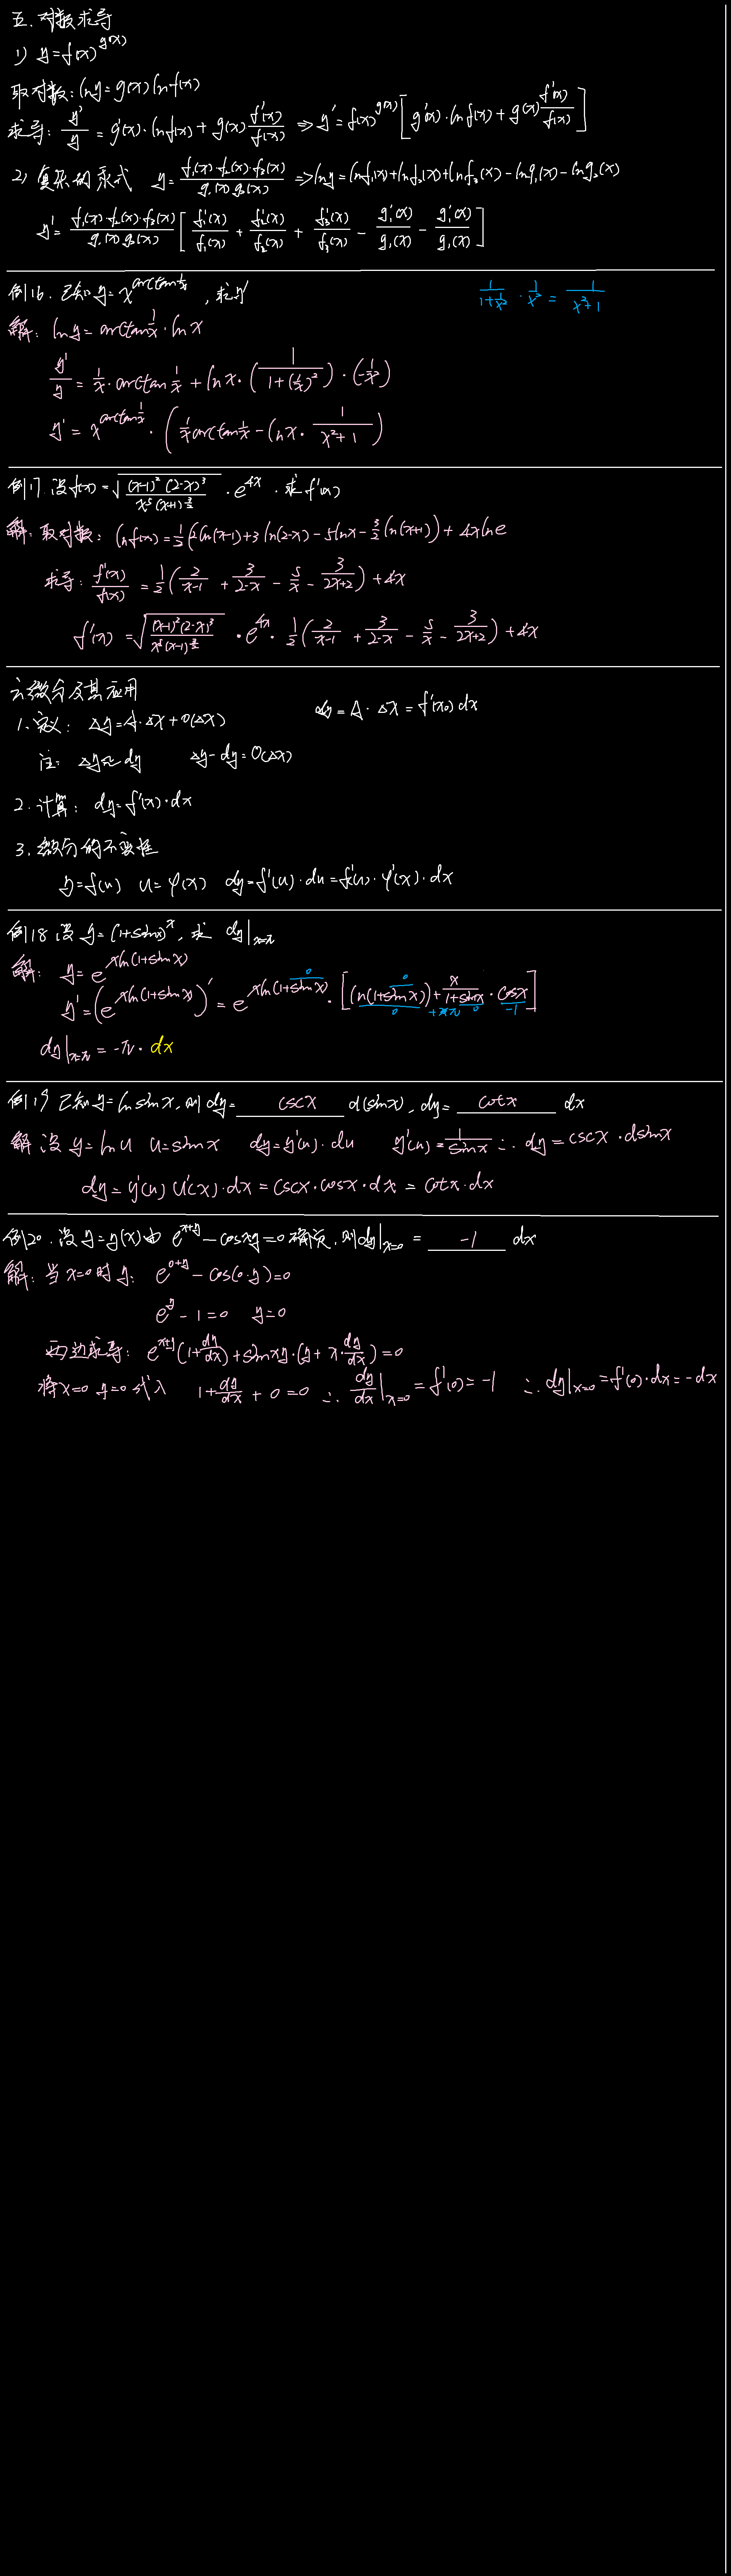 五. 对数求导
1) y=f(x)^{g(x)}
取对数: ln y = g(x) ln f(x)
求导: y'/y = g'(x)·ln f(x) + g(x) f'(x)/f(x) ⇒ y' = f(x)^{g(x)} [g'(x)·ln f(x) + g(x) f'(x)/f(x)]
2) 复杂的乘式 y = f₁(x)·f₂(x)·f₃(x) / g₁(x) g₂(x) ⇒ ln y = ln f₁(x) + ln f₂(x) + ln f₃(x) − ln g₁(x) − ln g₂(x)
y' = f₁(x)·f₂(x)·f₃(x) / g₁(x) g₂(x) [f₁'(x)/f₁(x) + f₂'(x)/f₂(x) + f₃'(x)/f₃(x) − g₁'(x)/g₁(x) − g₁'(x)/g₁(x)]
例16. 已知 y = x^{arctan 1/x}, 求 y'
1/(1+1/x²) · 1/x² = 1/(x²+1)
解: ln y = arctan 1/x · ln x
y'/y = 1/x · arctan 1/x + ln x · (1/(1+(1/x)²)) · (−1/x²)
y' = x^{arctan 1/x} · (1/x arctan 1/x − ln x · 1/(x²+1))
例17. 设 f(x) = √((x-1)²(2-x)³ / x⁵(x+1)^{3/2}) · e^{4x}. 求 f'(x)
解: 取对数: ln f(x) = 1/2 (2 ln(x-1) + 3 ln(2-x) − 5 ln x − 3/2 ln(x+1)) + 4x ln e
求导: f'(x)/f(x) = 1/2 (2/(x-1) + 3/(2-x) − 5/x − 3/(2x+2)) + 4x
f'(x) = √((x-1)²(2-x)³ / x⁵(x-1)^{3/2}) · e^{4x} · 1/2 (2/(x-1) + 3/(2-x) − 5/x − 3/(2x+2)) + 4x
六. 微分及其应用
1. 定义: Δy = A·Δx + o(Δx) dy = A·Δx = f'(x₀) dx
注: Δy ≈ dy Δy − dy = o(Δx)
2. 计算: dy = f'(x)·dx
3. 微分的不变性
y = f(u) u = φ(x) dy = f'(u)·du = f'(u)·φ'(x)·dx
例18 设 y = (1+sinx)^x, 求 dy|_{x=π}
解: y = e^{x ln(1+sinx)}
y' = (e^{x ln(1+sinx)})' = e^{x ln(1+sinx)} · [ln(1+sinx) + x/(1+sinx) · cosx]
dy|_{x=π} = −π · dx
例19 已知 y = ln sinx, 则 dy = cscx d(sinx), dy = cotx dx
解 设 y = ln u u = sinx dy = y'(u)·du y'(u) = 1/sinx ∴ dy = cscx · dsinx
dy = y'(u) u'(x)·dx = cscx · cosx · dx = cotx · dx
例20. 设 y = y(x) 由 e^{x+y} − cosxy = 0 确定, 则 dy|_{x=0} = -1 dx
解: 当 x=0 时 y: e^{0+y} − cos(0·y) = 0
e^y − 1 = 0 y = 0
两边求导: e^{x+y}(1 + dy/dx) + sinxy·(y + x·dy/dx) = 0
将 x=0 y=0 代入 1 + dy/dx + 0 = 0 ∴ dy/dx|_{x=0} = f'(0) = −1 ∴ dy|_{x=0} = f'(0)·dx = −dx